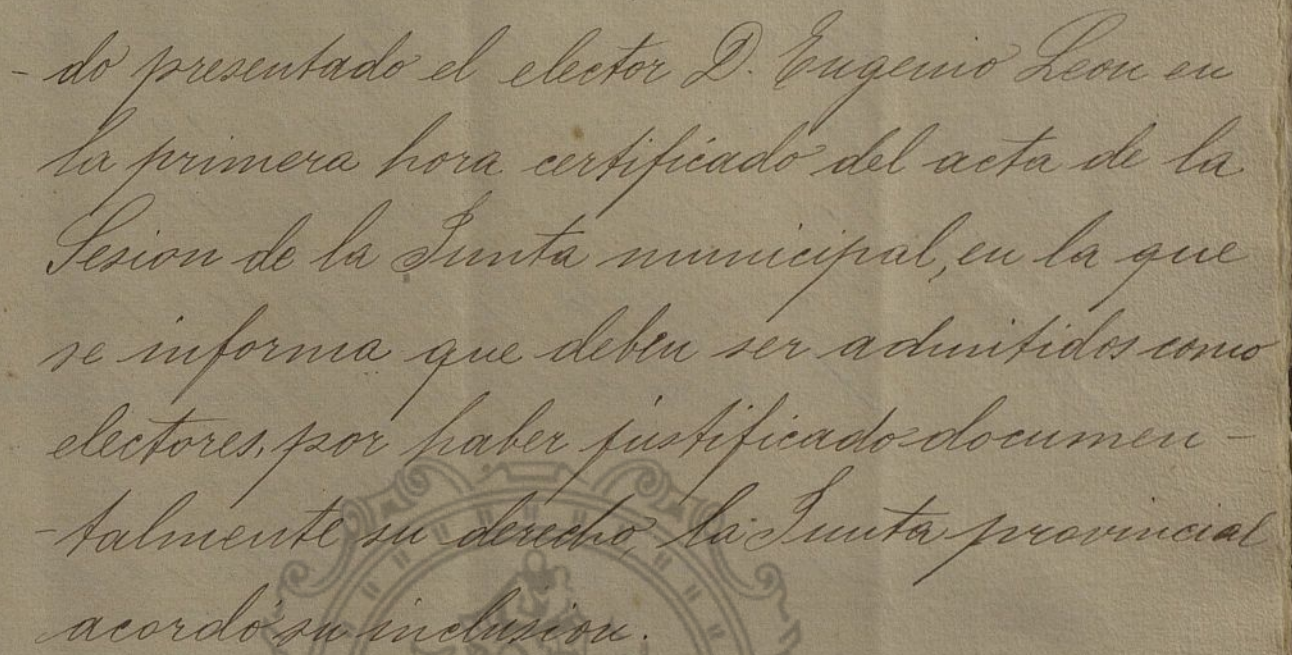 - do presentado el elector D. Eugenio Leon en
la primera hora certificado del acta de la
Sesion de la Junta municipal, en la que
se informa que deben ser admitidos como
electores, por haber justificado documen -
- talmente su derecho, la Junta provincial
acordó su inclusion.